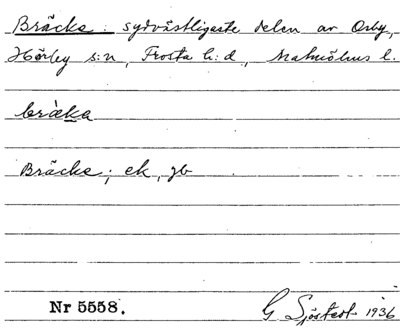 Bräcke: sydvästligaste delen av Osby,
Hörby s:n, Frosta h:d, Malmöhus l.
bräka
Bräcke; ek, gb
Nr 5558.
G Sjöstedt 1936